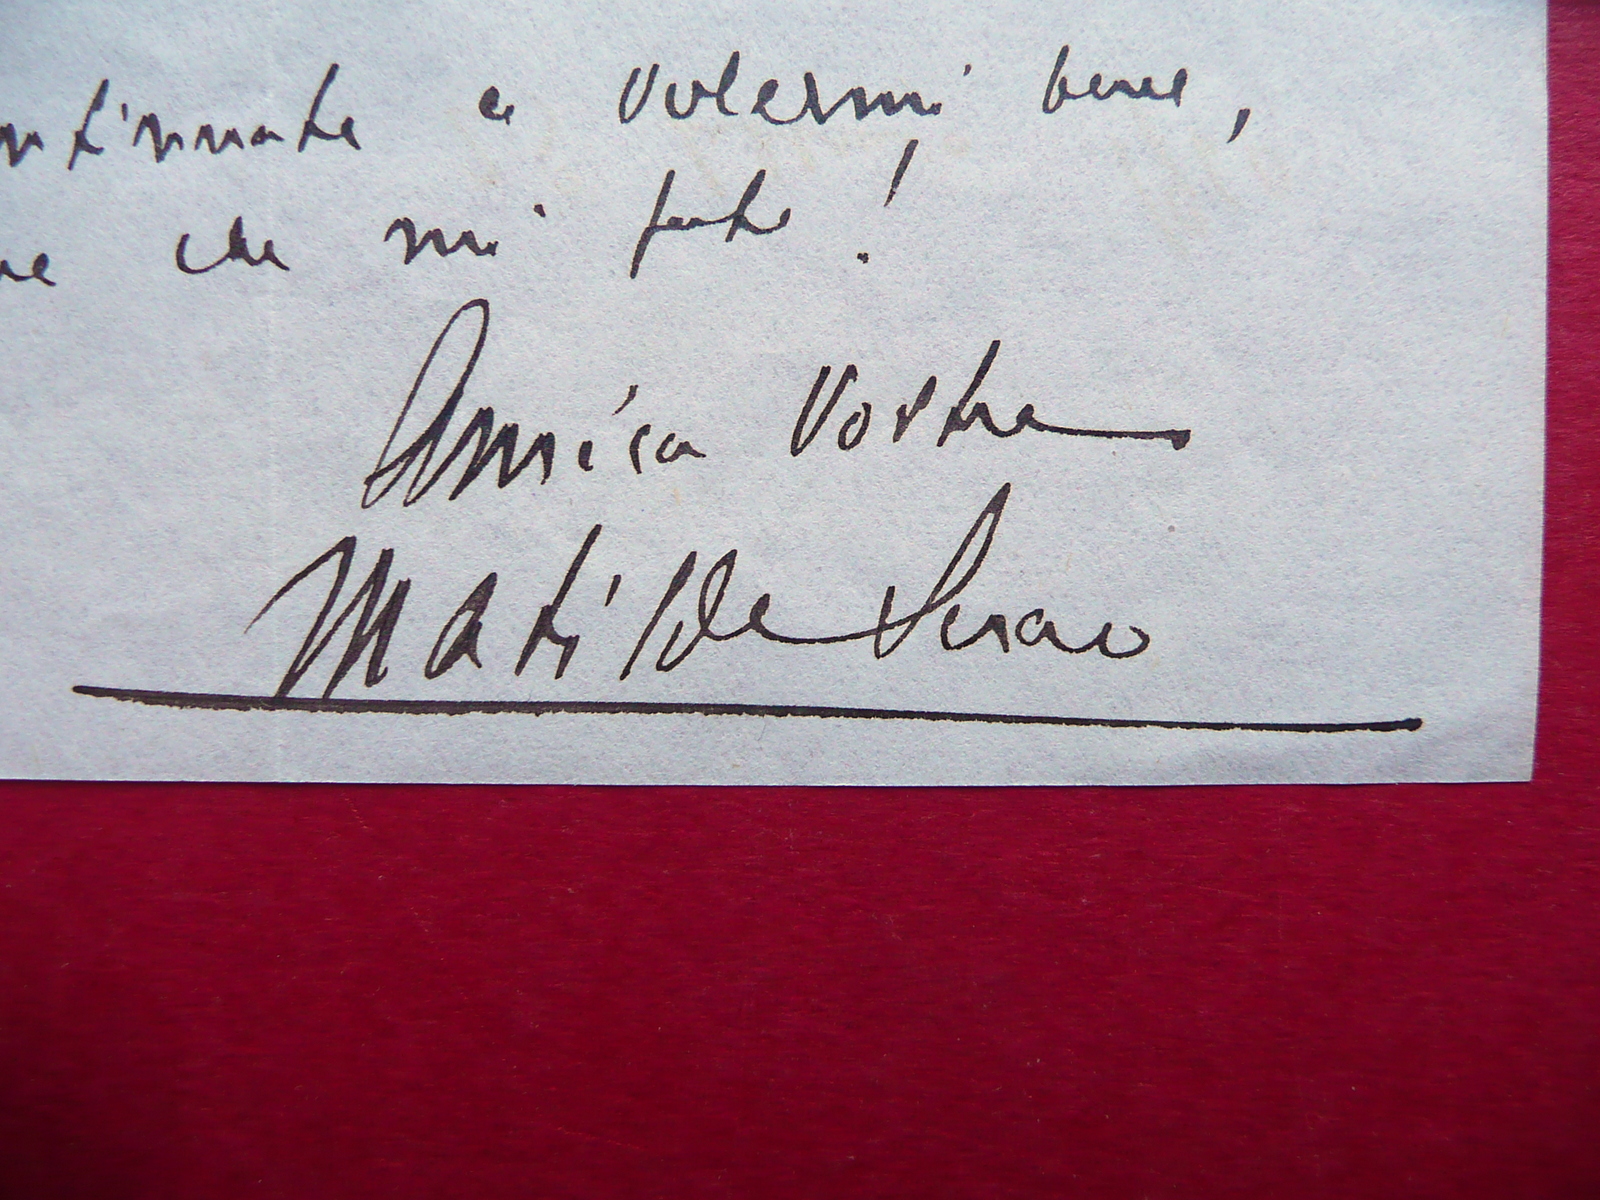 ntinuate a volermi bene,
ne che mi fate!
Amica Vostra
Matilde Serao